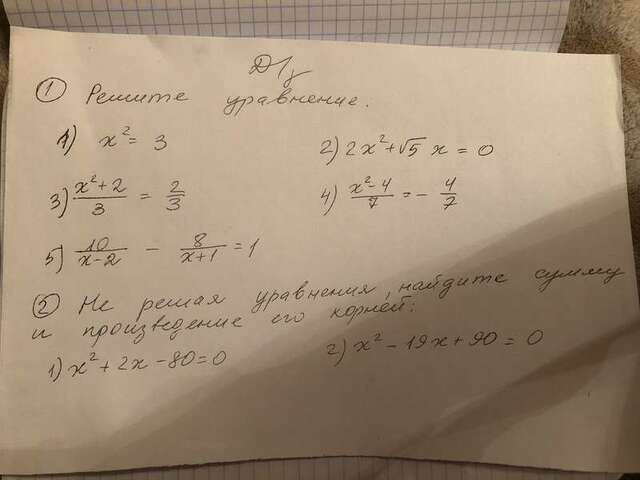 Д/з
① Решите уравнение.
1) x² = 3
2) 2x² + √5 x = 0
3) (x² + 2)/3 = 2/3
4) (x² - 4)/7 = - 4/7
5) 10/(x - 2) - 8/(x + 1) = 1
② Не решая уравнения, найдите сумму
и произведение его корней:
1) x² + 2x - 80 = 0
2) x² - 19x + 90 = 0